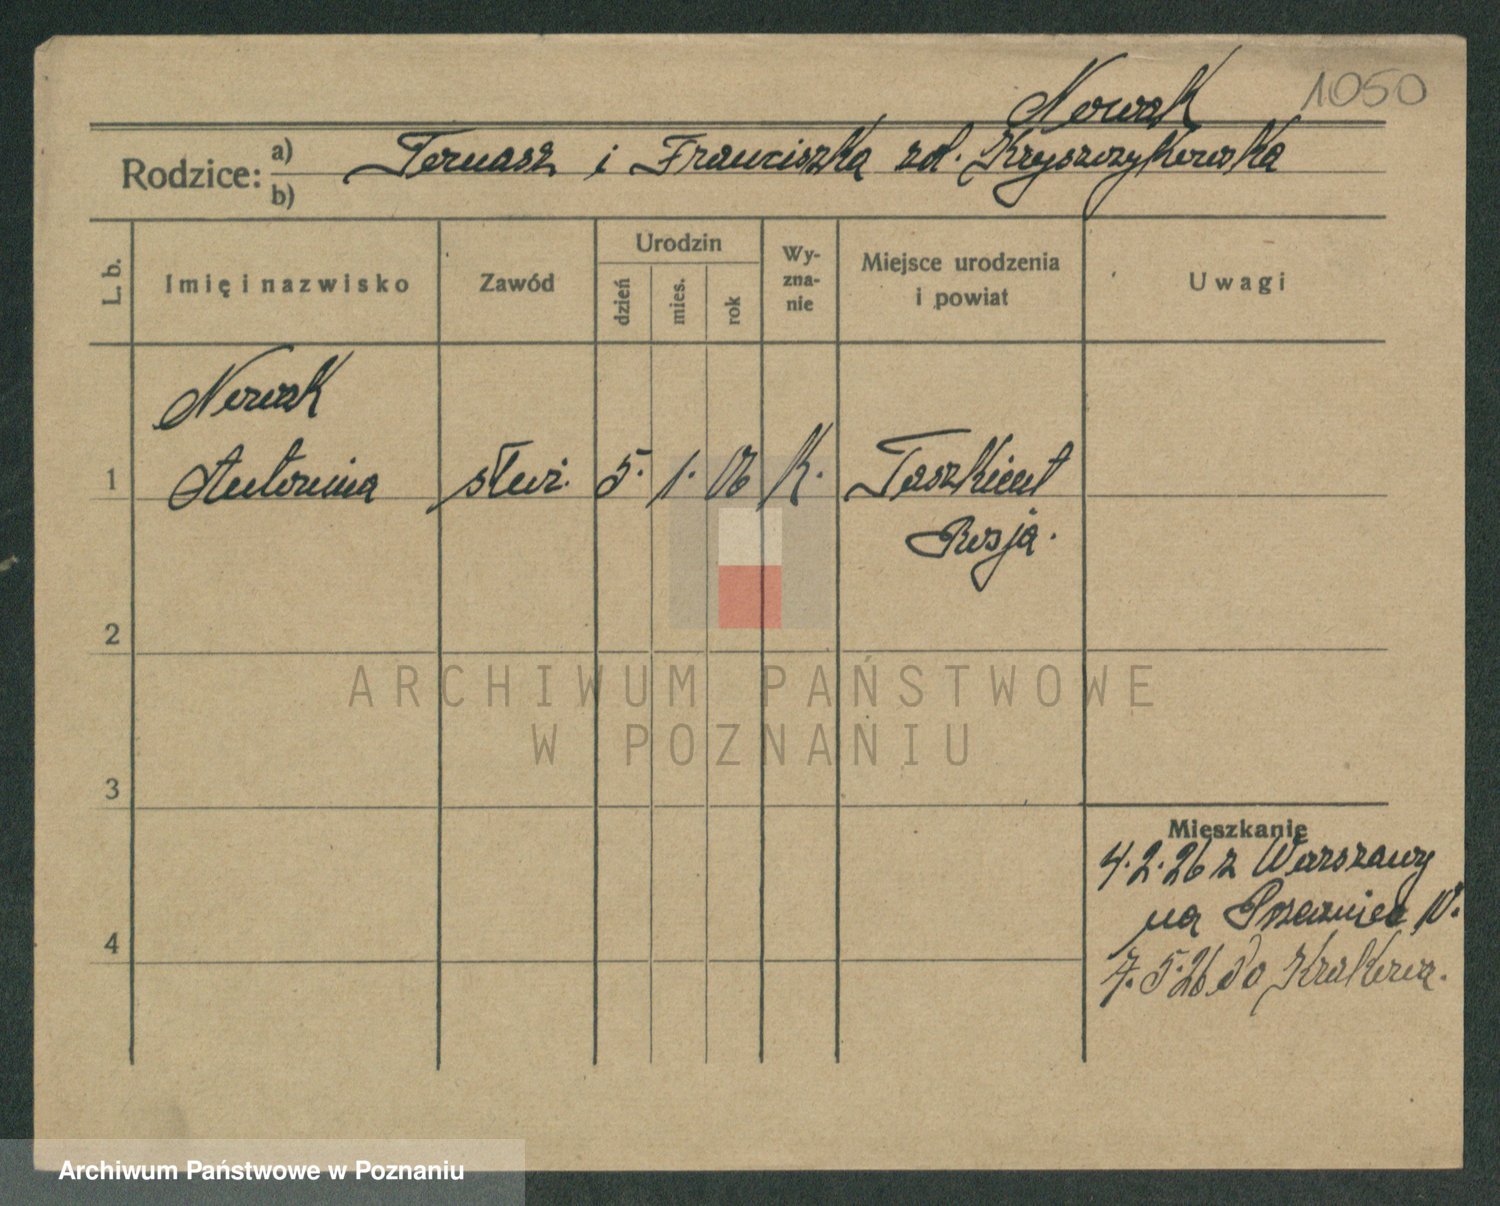 Nowak 1050
Rodzice: a) Tomasz i Franciszka zd. Kryszczykowska
b)
L. b. Imię i nazwisko Zawód Urodzin dzień mies. rok Wy-zna-nie Miejsce urodzenia i powiat Uwagi
Nowak
1 Antonina służ. 5. 1. 06 k. Taszkient
Rosja.
2
3
4
Mieszkanie
4.2.26 z Warszawy
na 10.
7.5.26 do Krakowa.
ARCHIWUM PAŃSTWOWE
W POZNANIU
Archiwum Państwowe w Poznaniu